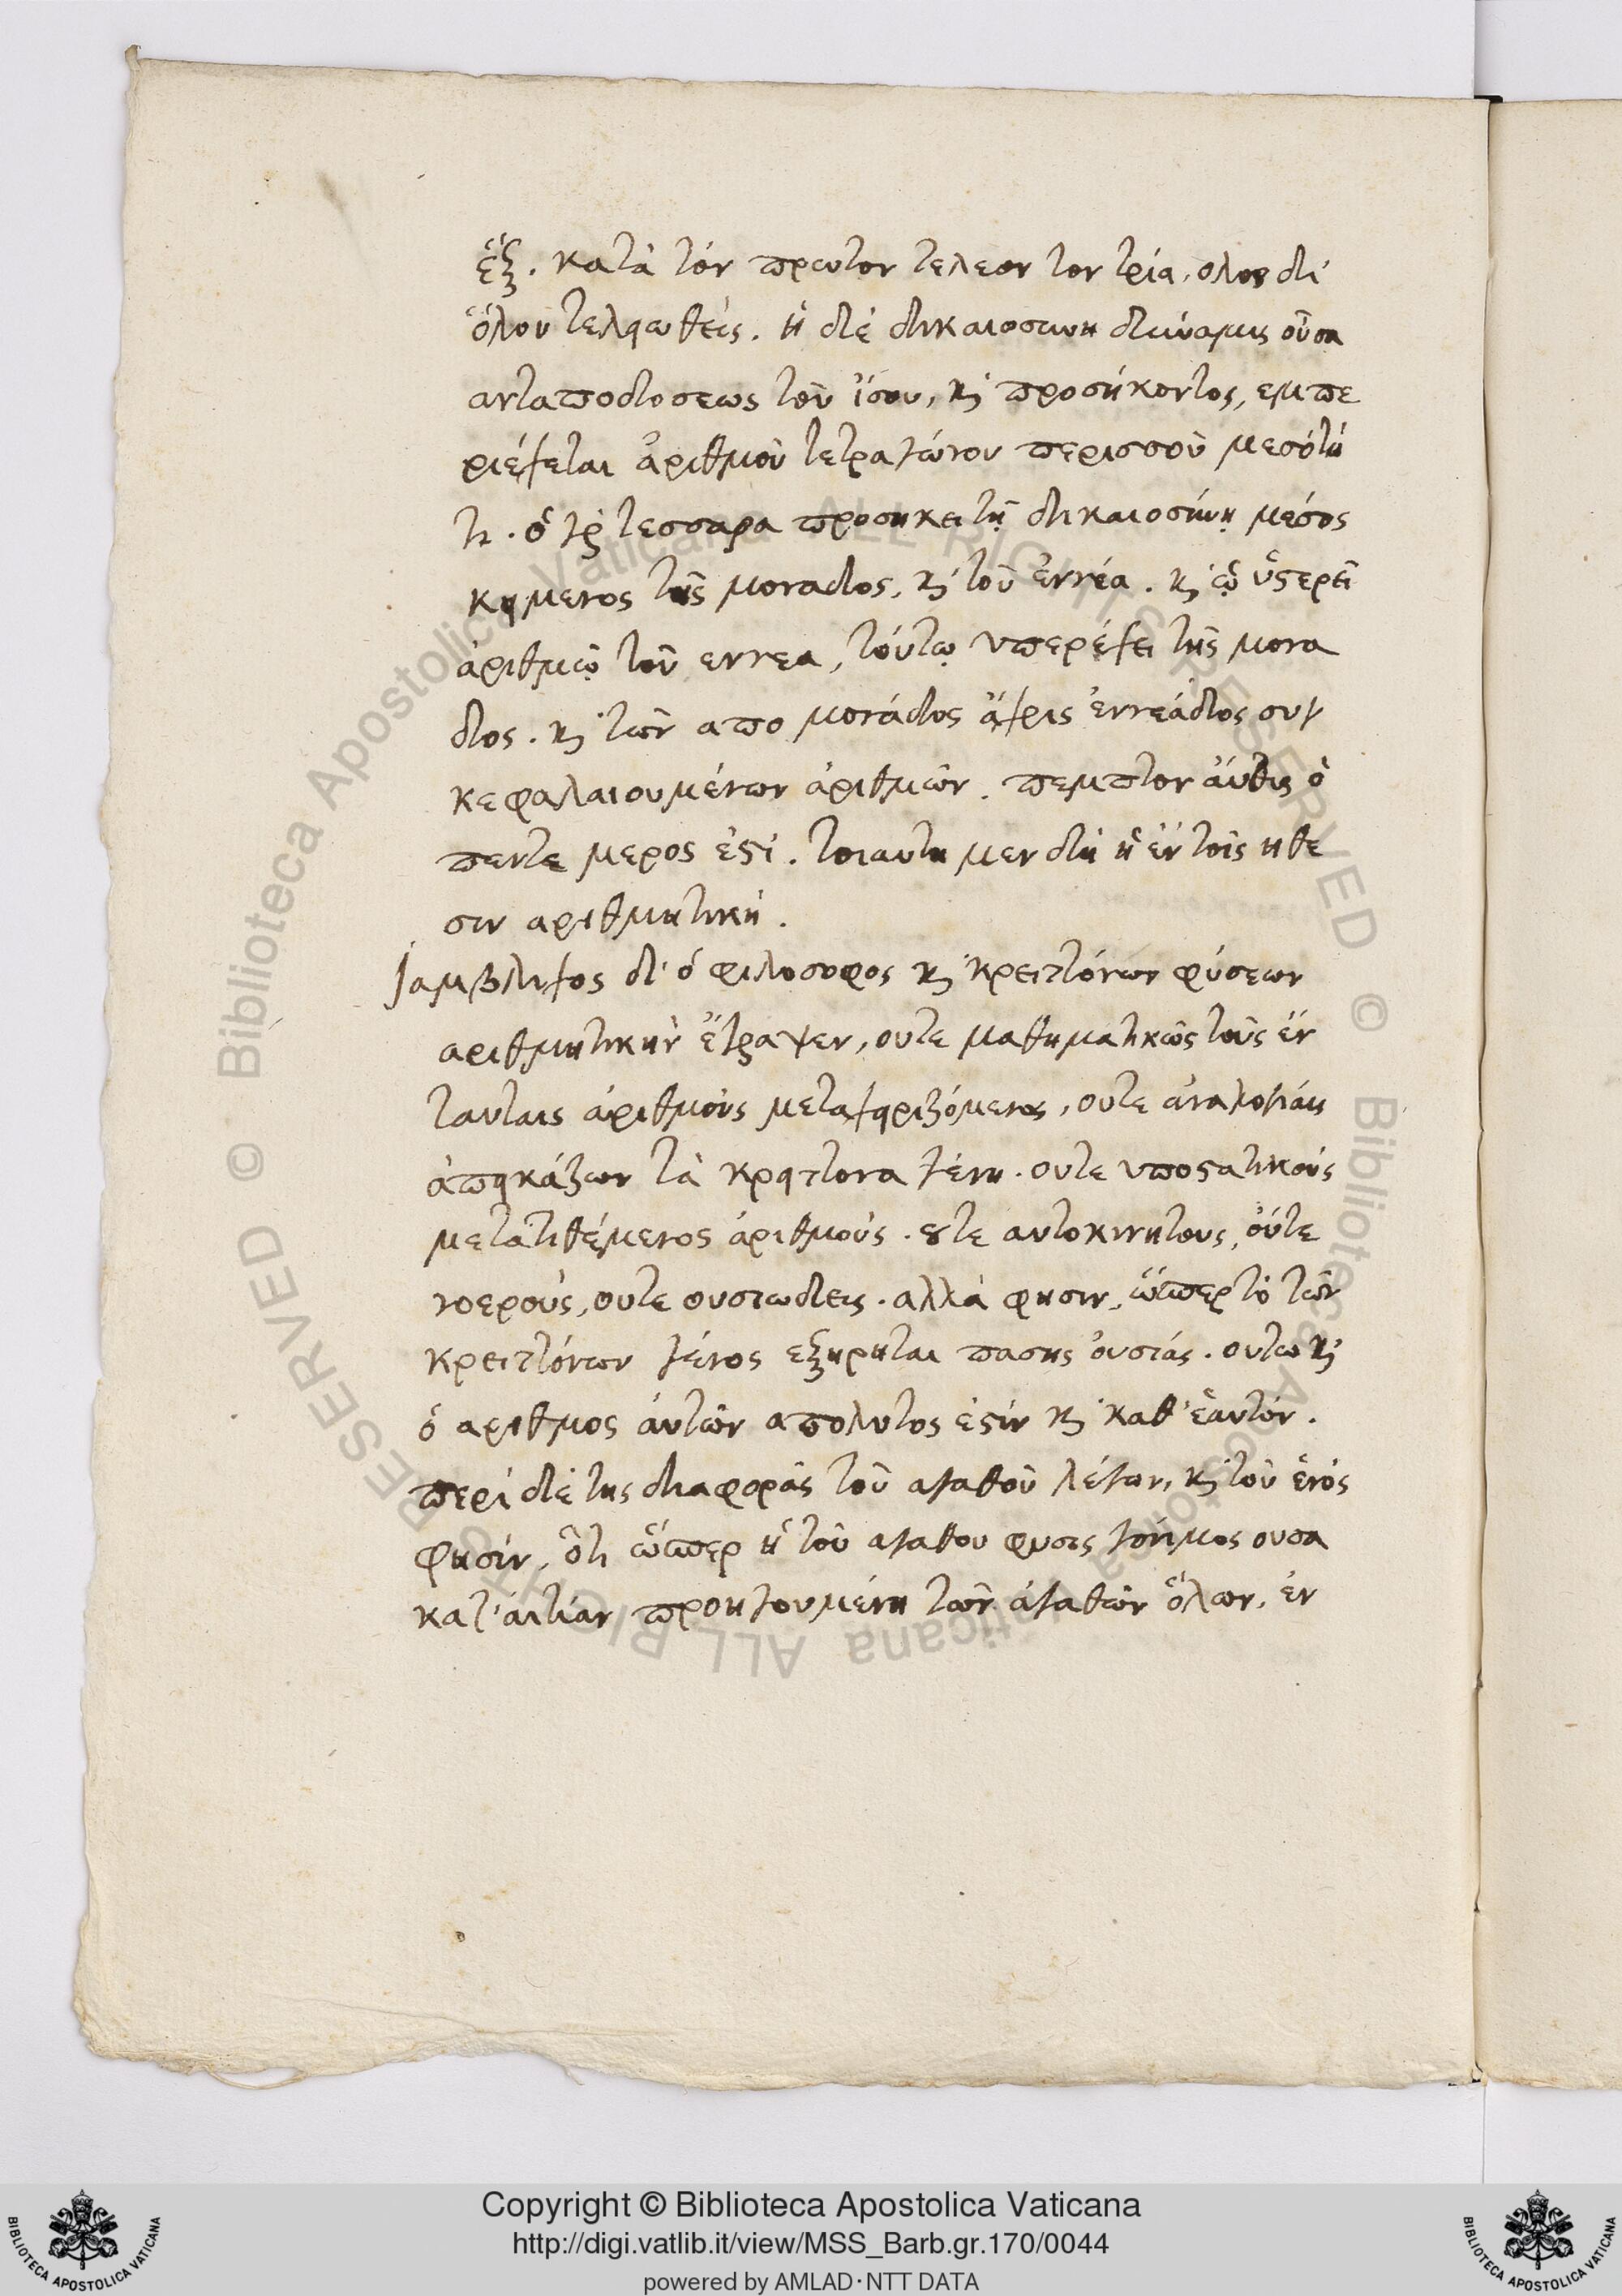 ἕξ. κατὰ τὸν πρωτον τελεον τον τρία, ολος δι᾽
ὅλου τελειωθεὶς. ἡ δὲ δικαιοσυνη δύναμις οὖσα
ανταποδοσεως τοῦ ἴσου, κ̀ προσήκοντος, εμπε
ριέχεται ἀριθμοῦ τετραγώνου περισσοῦ μεσότη
τι. ὁ γὰρ τεσσαρα προσηκει τῇ δικαιοσύνῃ μέσος
κειμενος τῆς μοναδος, κ̀ τοῦ ἐννέα. κ̀ ᾧ ὑστερεῖ
ἀριθμῷ τοῦ εννεα, τούτῳ υπερέχει τῆς μονα
δος. κ̀ τῶν απο μονάδος ἄχρις ἐννεάδος συγ
κεφαλαιουμένων ἀριθμῶν. πεμπτον ἀύθις ὁ
πεντε μερος ἐστί. τοιαυτη μεν δὴ ἡ ἐν τοῖς ηθε
σιν αριθμητική.
Ιαμβλιχος δ᾽ ὁ φιλοσοφος κ̀ κρειττόνων φύσεων
αριθμητικὴν ἔγραψεν, ουτε μαθηματικῶς τοὺς ἐν
ταυταις ἀριθμοὺς μεταχειριζόμενος, ουτε ἀναλογίαις
ἀπεικάζων τὰ κρειττονα γένη. ουτε υποστατικοὺς
μετατιθέμενος ἀριθμούς. ȣτε αυτοκινητους, ὀύτε
νοερούς, ουτε ουσιωδεις. αλλά φησιν, ὥσπερ τὸ τῶν
κρειττόνων γένος εξηρηται πασης ὀυσιάς. ουτω κ̀
ὁ αριθμος ἀυτῶν απολυτος ἐστίν κ̀ καθ᾽ ἑαυτόν.
περὶ δὲ της διαφορᾶς τοῦ αγαθοῦ λέγων, κ̀ τοῦ ἑνός
φησίν, ὅτι ὥσπερ ἡ τοῦ αγαθου φυσις γονιμος ουσα
κατ᾽ ἀιτίαν προηγουμένη τῶν ἀγαθῶν ὅλων, ἐν
Copyright © Biblioteca Apostolica Vaticana
http://digi.vatlib.it/view/MSS_Barb.gr.170/0044
powered by AMLAD·NTT DATA